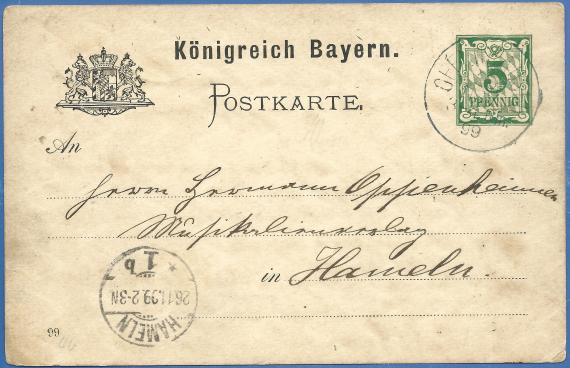 Königreich Bayern.
POSTKARTE.
5
PFENNIG
99
An
Herrn Hermann Oppenheimer
Musikalienverlag
in Hameln.
HAMELN
26.11.99.2-3N
* 1b
99